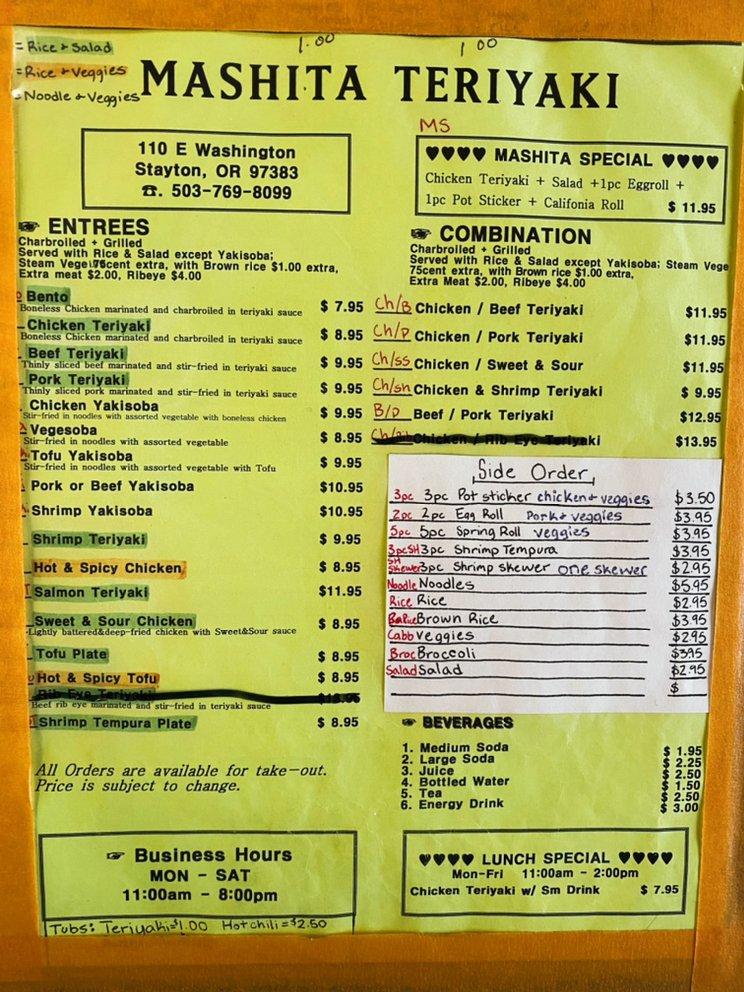 = Rice + Salad
= Rice + Veggies
= Noodle + Veggies
1.00
1 00
MASHITA TERIYAKI
110 E Washington
Stayton, OR 97383
☎. 503-769-8099
MS
♥♥♥♥ MASHITA SPECIAL ♥♥♥♥
Chicken Teriyaki + Salad +1pc Eggroll +
1pc Pot Sticker + Califonia Roll $ 11.95
☞ ENTREES
Charbroiled + Grilled
Served with Rice & Salad except Yakisoba;
Steam Vege 75cent extra, with Brown rice $1.00 extra,
Extra meat $2.00, Ribeye $4.00
Bento $ 7.95
Boneless Chicken marinated and charbroiled in teriyaki sauce
Chicken Teriyaki $ 8.95
Boneless Chicken marinated and charbroiled in teriyaki sauce
Beef Teriyaki $ 9.95
Thinly sliced beef marinated and stir-fried in teriyaki sauce
Pork Teriyaki $ 9.95
Thinly sliced pork marinated and stir-fried in teriyaki sauce
Chicken Yakisoba $ 9.95
Stir-fried in noodles with assorted vegetable with boneless chicken
Vegesoba $ 8.95
Stir-fried in noodles with assorted vegetable
Tofu Yakisoba $ 9.95
Stir-fried in noodles with assorted vegetable with Tofu
Pork or Beef Yakisoba $10.95
Shrimp Yakisoba $10.95
Shrimp Teriyaki $ 9.95
Hot & Spicy Chicken $ 8.95
Salmon Teriyaki $11.95
Sweet & Sour Chicken $ 8.95
Lightly battered&deep-fried chicken with Sweet&Sour sauce
Tofu Plate $ 8.95
Hot & Spicy Tofu $ 8.95
Rib Eye Teriyaki
Beef rib eye marinated and stir-fried in teriyaki sauce
Shrimp Tempura Plate $ 8.95
All Orders are available for take-out.
Price is subject to change.
☞ Business Hours
MON - SAT
11:00am - 8:00pm
Tubs: Teriyaki=$1.00 Hot chili=$2.50
☞ COMBINATION
Charbroiled + Grilled
Served with Rice & Salad except Yakisoba; Steam Vege
75cent extra, with Brown rice $1.00 extra,
Extra meat $2.00, Ribeye $4.00
Ch/B Chicken / Beef Teriyaki $11.95
Ch/P Chicken / Pork Teriyaki $11.95
Ch/ss Chicken / Sweet & Sour $11.95
Ch/sh Chicken & Shrimp Teriyaki $ 9.95
B/P Beef / Pork Teriyaki $12.95
Chicken / Rib Eye Teriyaki $13.95
Side Order
3pc 3pc Pot sticker chicken + veggies $3.50
2pc 2pc Egg Roll Pork + veggies $3.95
5pc 5pc Spring Roll veggies $3.95
3pcSH 3pc Shrimp Tempura $3.95
SH skewer 3pc Shrimp skewer one skewer $2.95
Noodle Noodles $5.95
Rice Rice $2.95
Brown Rice $3.95
Cabb Veggies $2.95
Broc Broccoli $3.95
Salad Salad $2.95
$
☞ BEVERAGES
1. Medium Soda $ 1.95
2. Large Soda $ 2.25
3. Juice $ 2.50
4. Bottled Water $ 1.50
5. Tea $ 2.50
6. Energy Drink $ 3.00
♥♥♥♥ LUNCH SPECIAL ♥♥♥♥
Mon-Fri 11:00am - 2:00pm
Chicken Teriyaki w/ Sm Drink $ 7.95